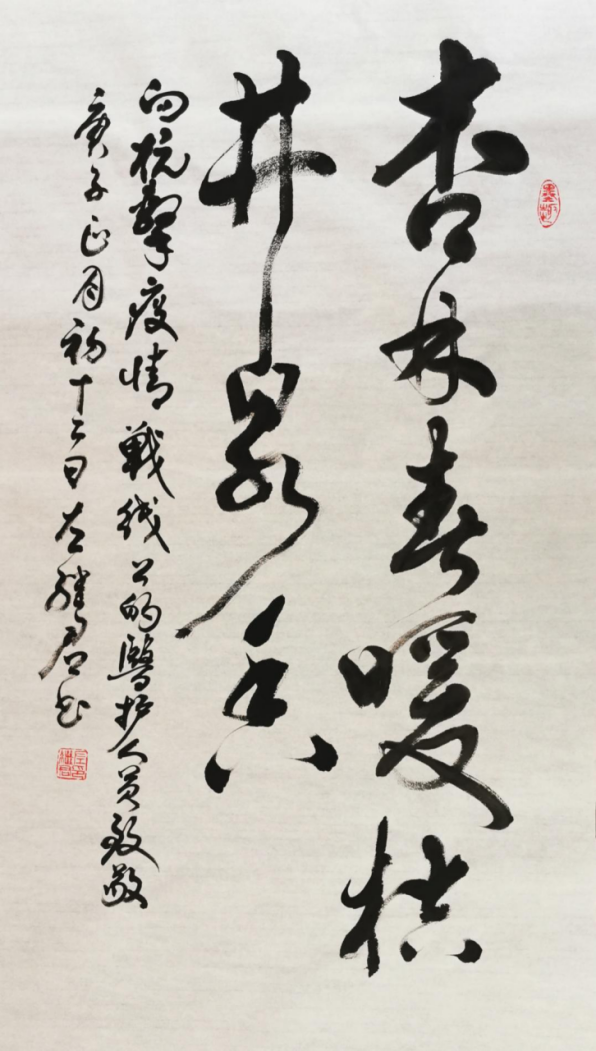 杏林春暖桔
井泉香
向抗擊疫情戰线上的醫护人员致敬
庚子正月初十二日左繼君书